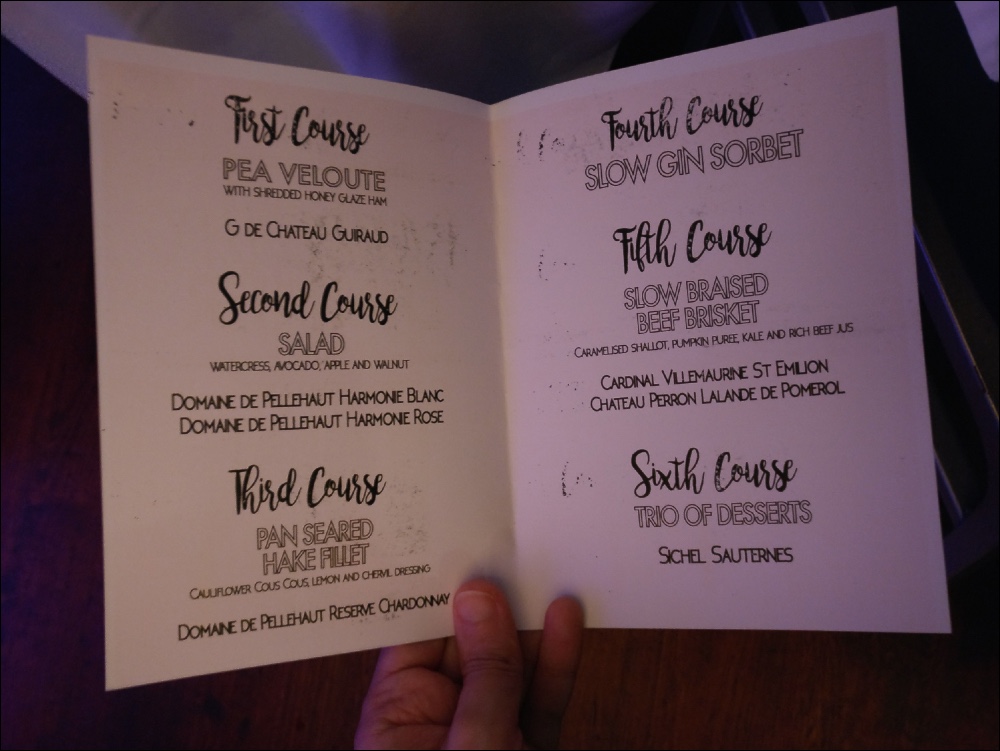 First Course
PEA VELOUTE
WITH SHREDDED HONEY GLAZE HAM
G DE CHATEAU GUIRAUD
Second Course
SALAD
WATERCRESS, AVOCADO, APPLE AND WALNUT
DOMAINE DE PELLEHAUT HARMONIE BLANC
DOMAINE DE PELLEHAUT HARMONIE ROSE
Third Course
PAN SEARED
HAKE FILLET
CAULIFLOWER COUS COUS, LEMON AND CHERVIL DRESSING
DOMAINE DE PELLEHAUT RESERVE CHARDONNAY
Fourth Course
SLOW GIN SORBET
Fifth Course
SLOW BRAISED
BEEF BRISKET
CARAMELISED SHALLOT, PUMPKIN PUREE, KALE AND RICH BEEF JUS
CARDINAL VILLEMAURINE ST EMILION
CHATEAU PERRON LALANDE DE POMEROL
Sixth Course
TRIO OF DESSERTS
SICHEL SAUTERNES